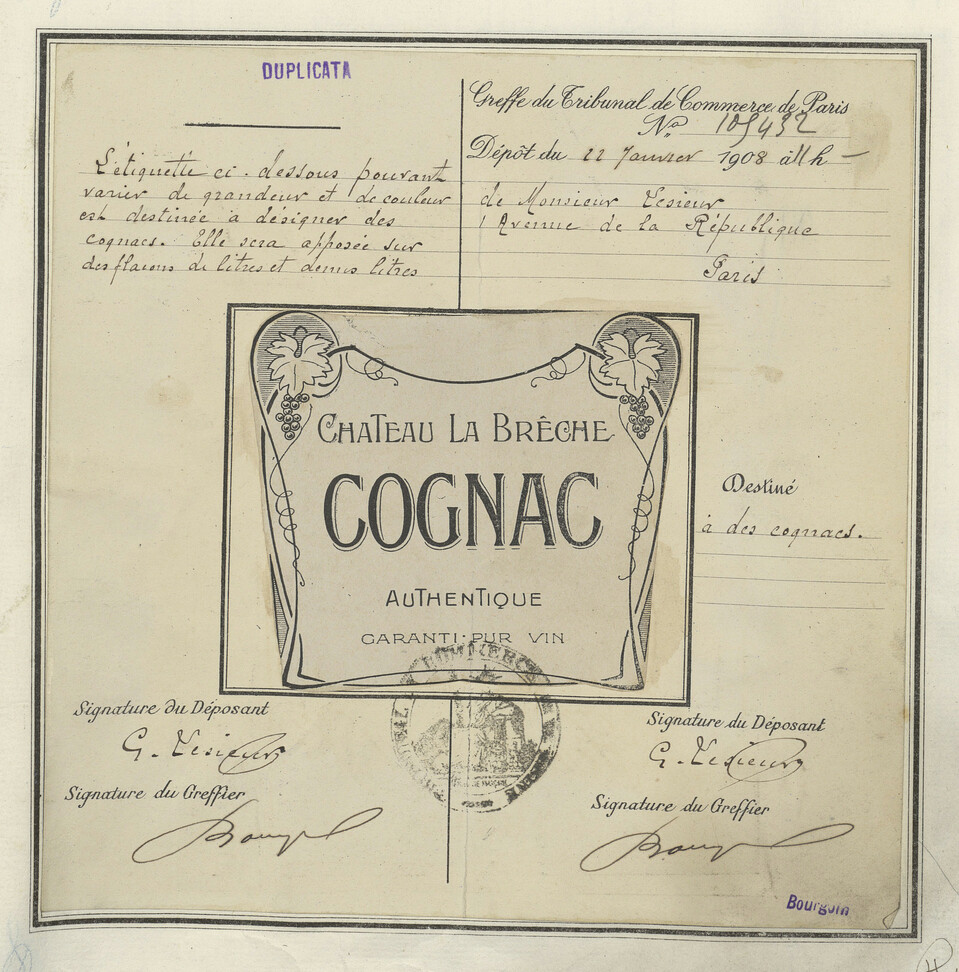 DUPLICATA
L'étiquette ci-dessous pouvant
varier de grandeur et de couleur
est destinée à désigner des
cognacs. Elle sera apposée sur
des flacons de litres et demis litres
Greffe du Tribunal de Commerce de Paris
No 109432
Dépôt du 22 Janvier 1908 à 11 h —
de Monsieur Lesieur
1 Avenue de la République
Paris
CHATEAU LA BRÊCHE
COGNAC
AUTHENTIQUE
GARANTI PUR VIN
Destiné
à des cognacs.
Signature du Déposant
G. Lesieur
Signature du Greffier
Signature du Déposant
G. Lesieur
Signature du Greffier
Bourgoin